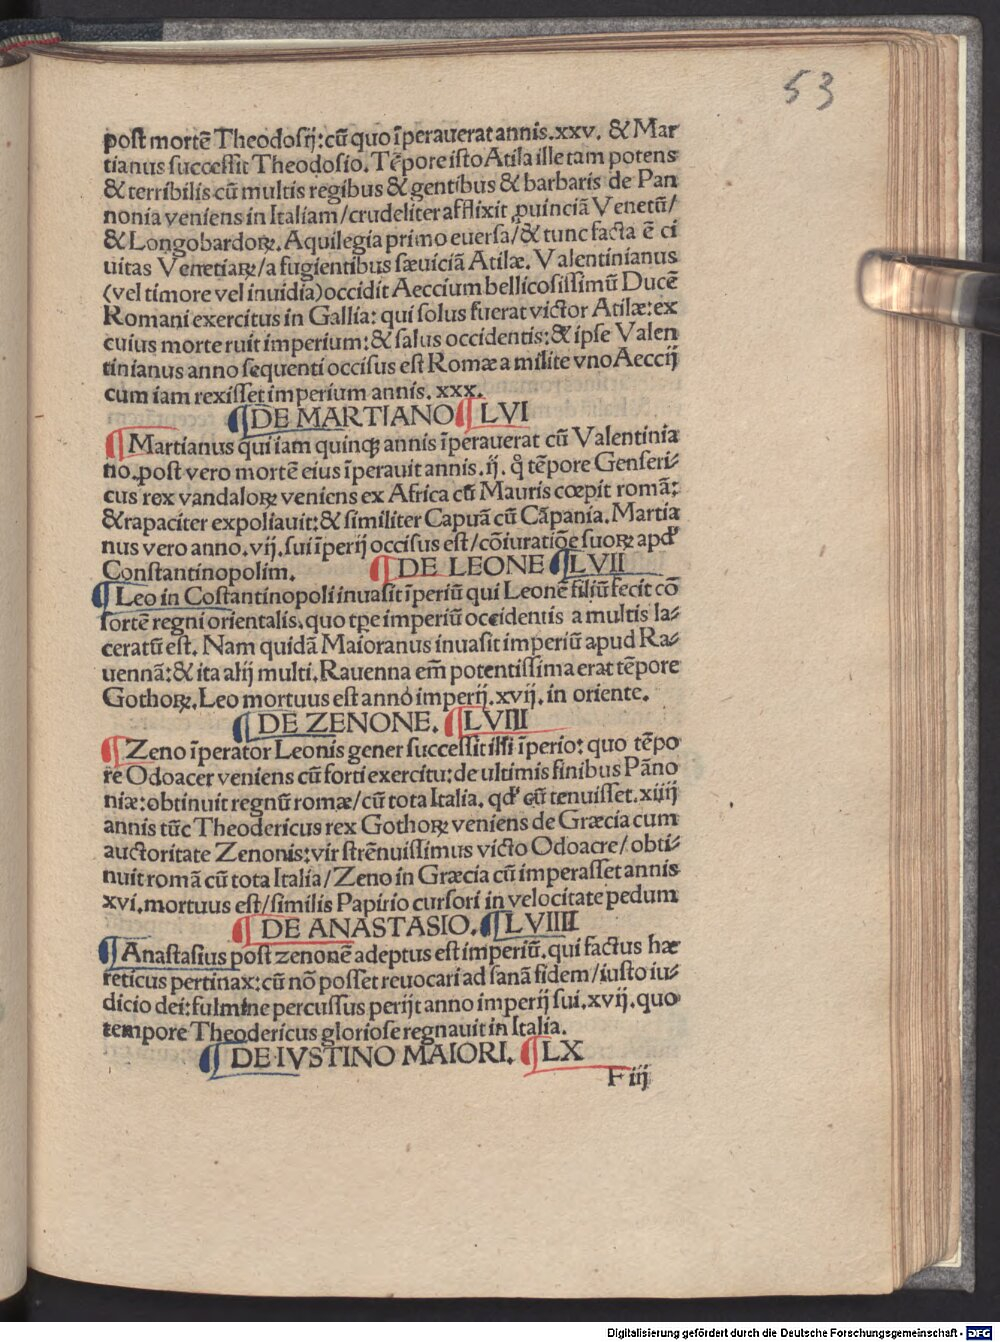 53
post mortē Theodosij: cū quo īperauerat annis. xxv. & Mar
tianus successit Theodosio. Tēpore isto Atila ille tam potens
& terribilis cū multis regibus & gentibus & barbaris de Pan
nonia veniens in Italiam/crudeliter afflixit ꝓuinciā Venetū/
& Longobardoꝝ. Aquilegia primo euersa/& tunc facta ē ci
uitas Venetiaꝝ/a fugientibus sæuiciā Atilæ. Valentinianus
(vel timore vel inuidia) occidit Aeccium bellicosissimū Ducē
Romani exercitus in Gallia: qui solus fuerat victor Atilæ: ex
cuius morte ruit imperium: & salus occidentis: & ipse Valen
tinianus anno sequenti occisus est Romæ a milite vno Aeccij
cum iam rexisset imperium annis. xxx.
¶ DE MARTIANO ¶ LVI
¶ Martianus qui iam quinqꝫ annis īperauerat cū Valentinia
no. post vero mortē eius īperauit annis. ij. q̊ tēpore Genseri⸗
cus rex vandaloꝝ veniens ex Africa cū Mauris cœpit romā:
& rapaciter expoliauit: & similiter Capuā cū Cāpania. Martia
nus vero anno. vij. sui īperij occisus est/cōiuratiōe suoꝝ apd'
Constantinopolim. ¶ DE LEONE ¶ LVII
¶ Leo in Cōstantinopoli inuasit īperiū qui Leonē filiū fecit cō
sortē regni orientalis. quo tꝑe imperiū occidentis a multis la⸗
ceratū est. Nam quidā Maioranus inuasit imperiū apud Ra⸗
uennā: & ita alij multi. Rauenna em̄ potentissima erat tēpore
Gothoꝝ. Leo mortuus est anno imperij. xvij. in oriente.
¶ DE ZENONE. ¶ LVIII
¶ Zeno īperator Leonis gener successit illi īperio: quo tēpo
re Odoacer veniens cū forti exercitu: de ultimis finibus Pāno
niæ: obtinuit regnū romæ/cū tota Italia. qd' cū tenuisset. xiiij
annis tūc Theodericus rex Gothoꝝ veniens de Græcia cum
auctoritate Zenonis: vir strēnuissimus victo Odoacre/obti⸗
nuit romā cū tota Italia/Zeno in Græcia cū imperasset annis
xvi. mortuus est/similis Papirio cursori in velocitate pedum
¶ DE ANASTASIO. ¶ LVIIII
¶ Anastasius post zenonē adeptus est imperiū. qui factus hæ
reticus pertinax: cū nō posset reuocari ad sanā fidem/iusto iu⸗
dicio dei: fulmine percussus perijt anno imperij sui. xvij. quo
tempore Theodericus gloriose regnauit in Italia.
¶ DE IVSTINO MAIORI. ¶ LX
F iij
Digitalisierung gefördert durch die Deutsche Forschungsgemeinschaft - DFG